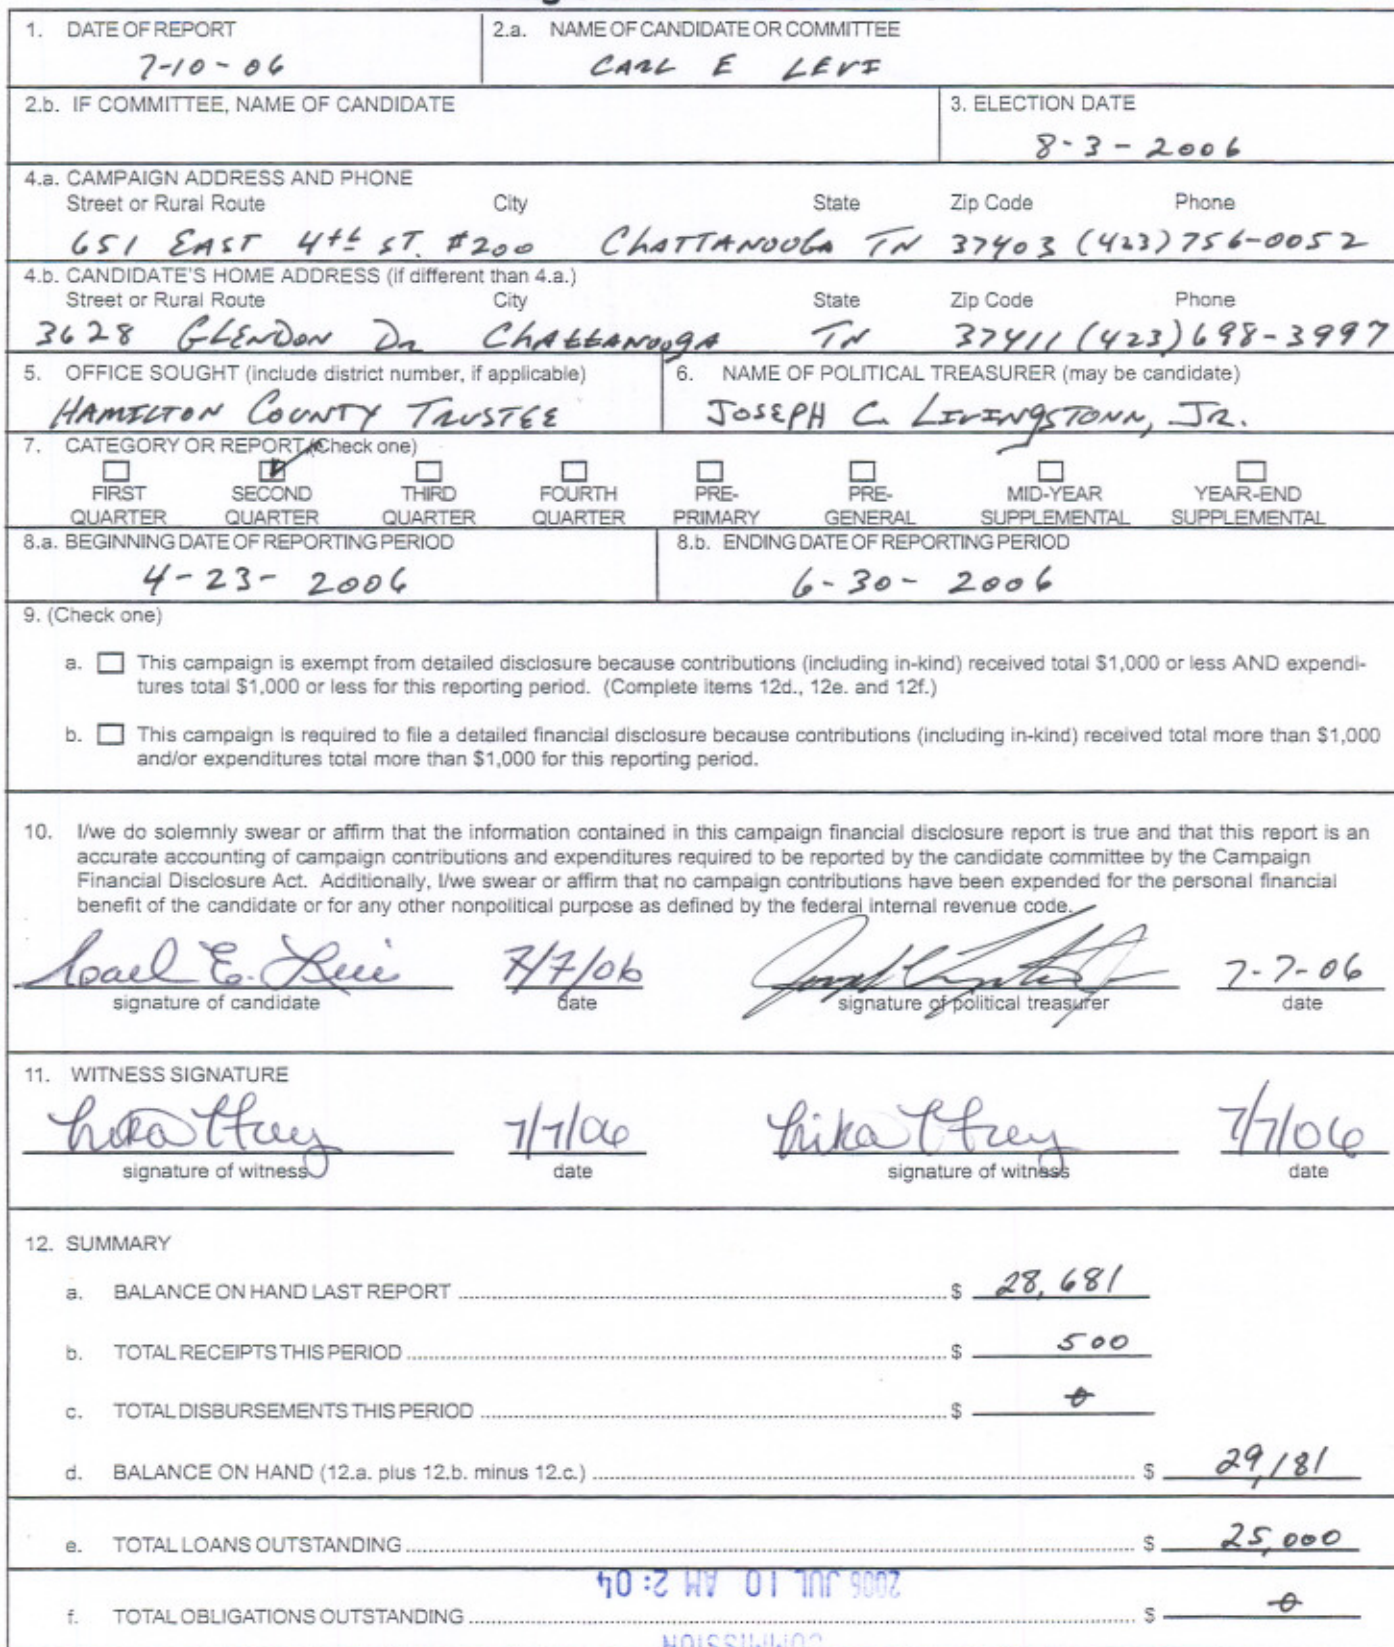 1. DATE OF REPORT 2.a. NAME OF CANDIDATE OR COMMITTEE
7-10-06 CARL E LEVI
2.b. IF COMMITTEE, NAME OF CANDIDATE 3. ELECTION DATE
8-3-2006
4.a. CAMPAIGN ADDRESS AND PHONE
Street or Rural Route City State Zip Code Phone
651 EAST 4th ST. #200 CHATTANOOGA TN 37403 (423) 756-0052
4.b. CANDIDATE'S HOME ADDRESS (if different than 4.a.)
Street or Rural Route City State Zip Code Phone
3628 GLENDON Dr CHATTANOOGA TN 37411 (423) 698-3997
5. OFFICE SOUGHT (include district number, if applicable) 6. NAME OF POLITICAL TREASURER (may be candidate)
HAMILTON COUNTY TRUSTEE JOSEPH C. LIVINGSTONN, JR.
7. CATEGORY OR REPORT (Check one)
FIRST SECOND THIRD FOURTH PRE- PRE- MID-YEAR YEAR-END
QUARTER QUARTER QUARTER QUARTER PRIMARY GENERAL SUPPLEMENTAL SUPPLEMENTAL
8.a. BEGINNING DATE OF REPORTING PERIOD 8.b. ENDING DATE OF REPORTING PERIOD
4-23-2006 6-30-2006
9. (Check one)
a. This campaign is exempt from detailed disclosure because contributions (including in-kind) received total $1,000 or less AND expendi-
tures total $1,000 or less for this reporting period. (Complete items 12d., 12e. and 12f.)
b. This campaign is required to file a detailed financial disclosure because contributions (including in-kind) received total more than $1,000
and/or expenditures total more than $1,000 for this reporting period.
10. I/we do solemnly swear or affirm that the information contained in this campaign financial disclosure report is true and that this report is an
accurate accounting of campaign contributions and expenditures required to be reported by the candidate committee by the Campaign
Financial Disclosure Act. Additionally, I/we swear or affirm that no campaign contributions have been expended for the personal financial
benefit of the candidate or for any other nonpolitical purpose as defined by the federal internal revenue code.
Carl E. Levi 7/7/06 7-7-06
signature of candidate date signature of political treasurer date
11. WITNESS SIGNATURE
7/7/06 7/7/06
signature of witness date signature of witness date
12. SUMMARY
a. BALANCE ON HAND LAST REPORT $ 28,681
b. TOTAL RECEIPTS THIS PERIOD $ 500
c. TOTAL DISBURSEMENTS THIS PERIOD $ 0
d. BALANCE ON HAND (12.a. plus 12.b. minus 12.c.) $ 29,181
e. TOTAL LOANS OUTSTANDING $ 25,000
2006 JUL 10 AM 2:04
f. TOTAL OBLIGATIONS OUTSTANDING $ 0
COMMISSION